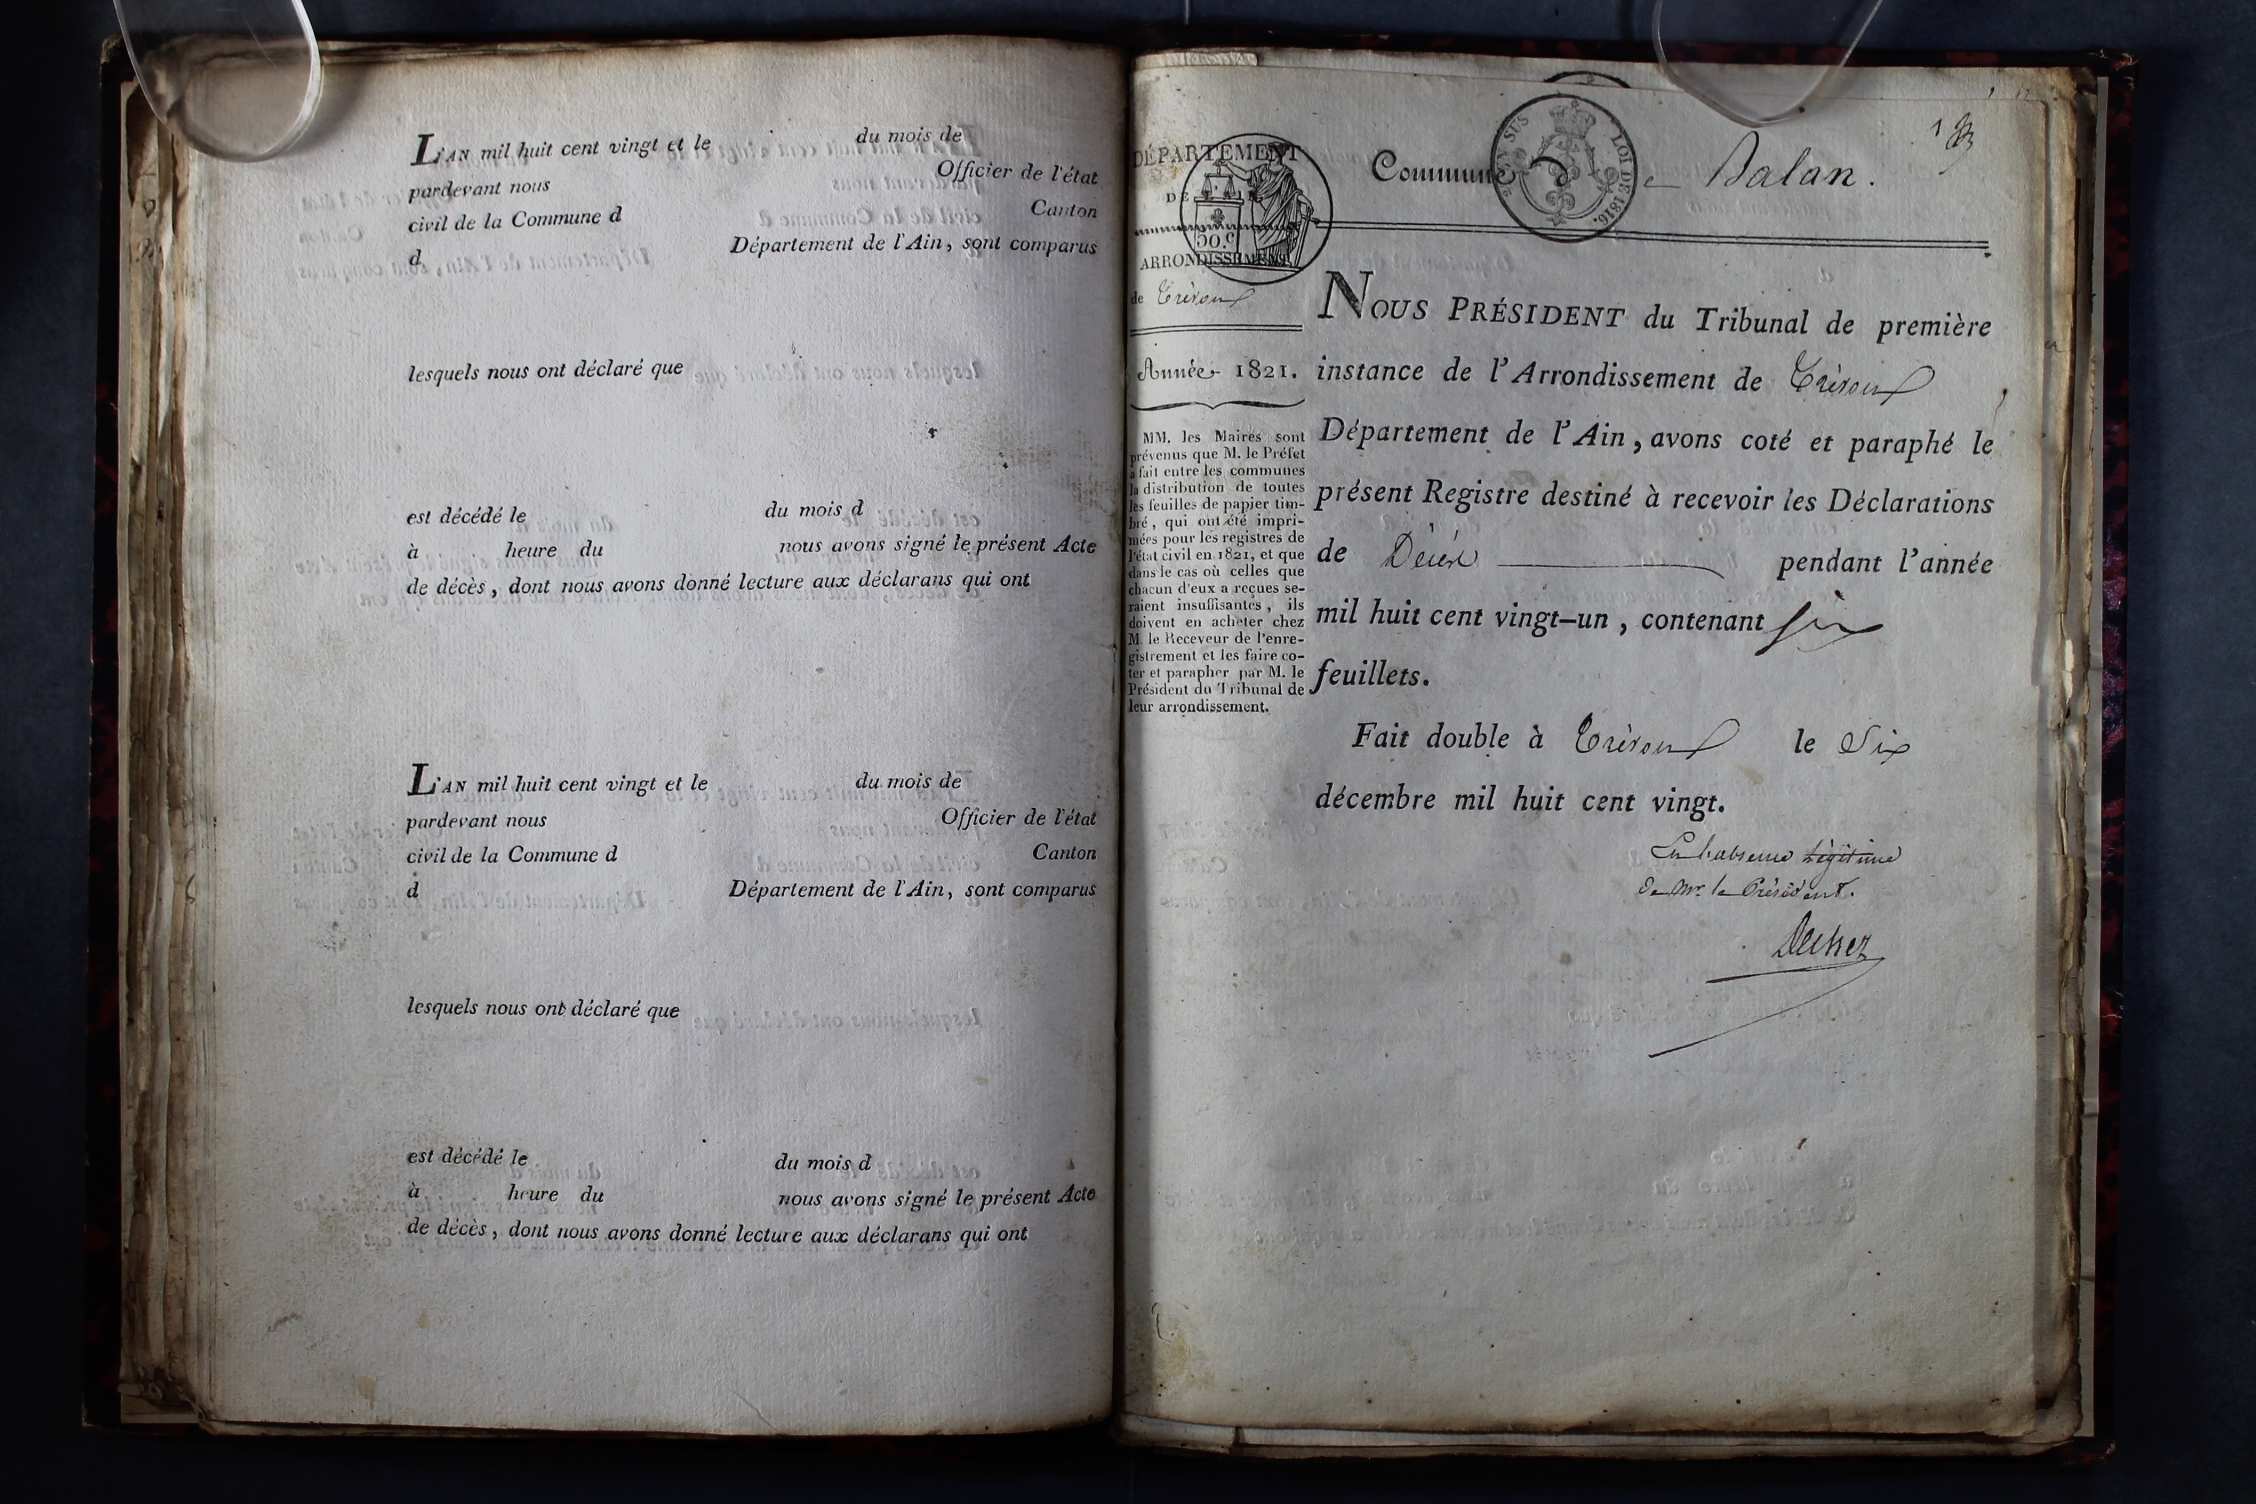 L'AN mil huit cent vingt et le du mois de
pardevant nous Officier de l'état
civil de la Commune d Canton
d Département de l'Ain, sont comparus
lesquels nous ont déclaré que
est décédé le du mois d
à heure du nous avons signé le présent Acte
de décès, dont nous avons donné lecture aux déclarans qui ont
L'AN mil huit cent vingt et le du mois de
pardevant nous Officier de l'état
civil de la Commune d Canton
d Département de l'Ain, sont comparus
lesquels nous ont déclaré que
est décédé le du mois d
à heure du nous avons signé le présent Acte
de décès, dont nous avons donné lecture aux déclarans qui ont
DÉPARTEMENT
DE L'AIN
50.c
ARRONDISSEMENT
de Trévoux
Année 1821.
MM. les Maires sont
prévenus que M. le Préfet
a fait entre les communes
la distribution de toutes
les feuilles de papier tim-
bré, qui ont été impri-
mées pour les registres de
l'état civil en 1821, et que
dans le cas où celles que
chacun d'eux a reçues se-
raient insuffisantes, ils
doivent en acheter chez
M. le Receveur de l'enre-
gistrement et les faire co-
ter et parapher par M. le
Président du Tribunal de
leur arrondissement.
EN SUS LOI DE 1816.
1
Commune de Balan.
NOUS PRÉSIDENT du Tribunal de première
instance de l'Arrondissement de Trévoux
Département de l'Ain, avons coté et paraphé le
présent Registre destiné à recevoir les Déclarations
de Décès pendant l'année
mil huit cent vingt-un, contenant six
feuillets.
Fait double à Trévoux le Six
décembre mil huit cent vingt.
En l'absence légitime
de Mr. le Président.